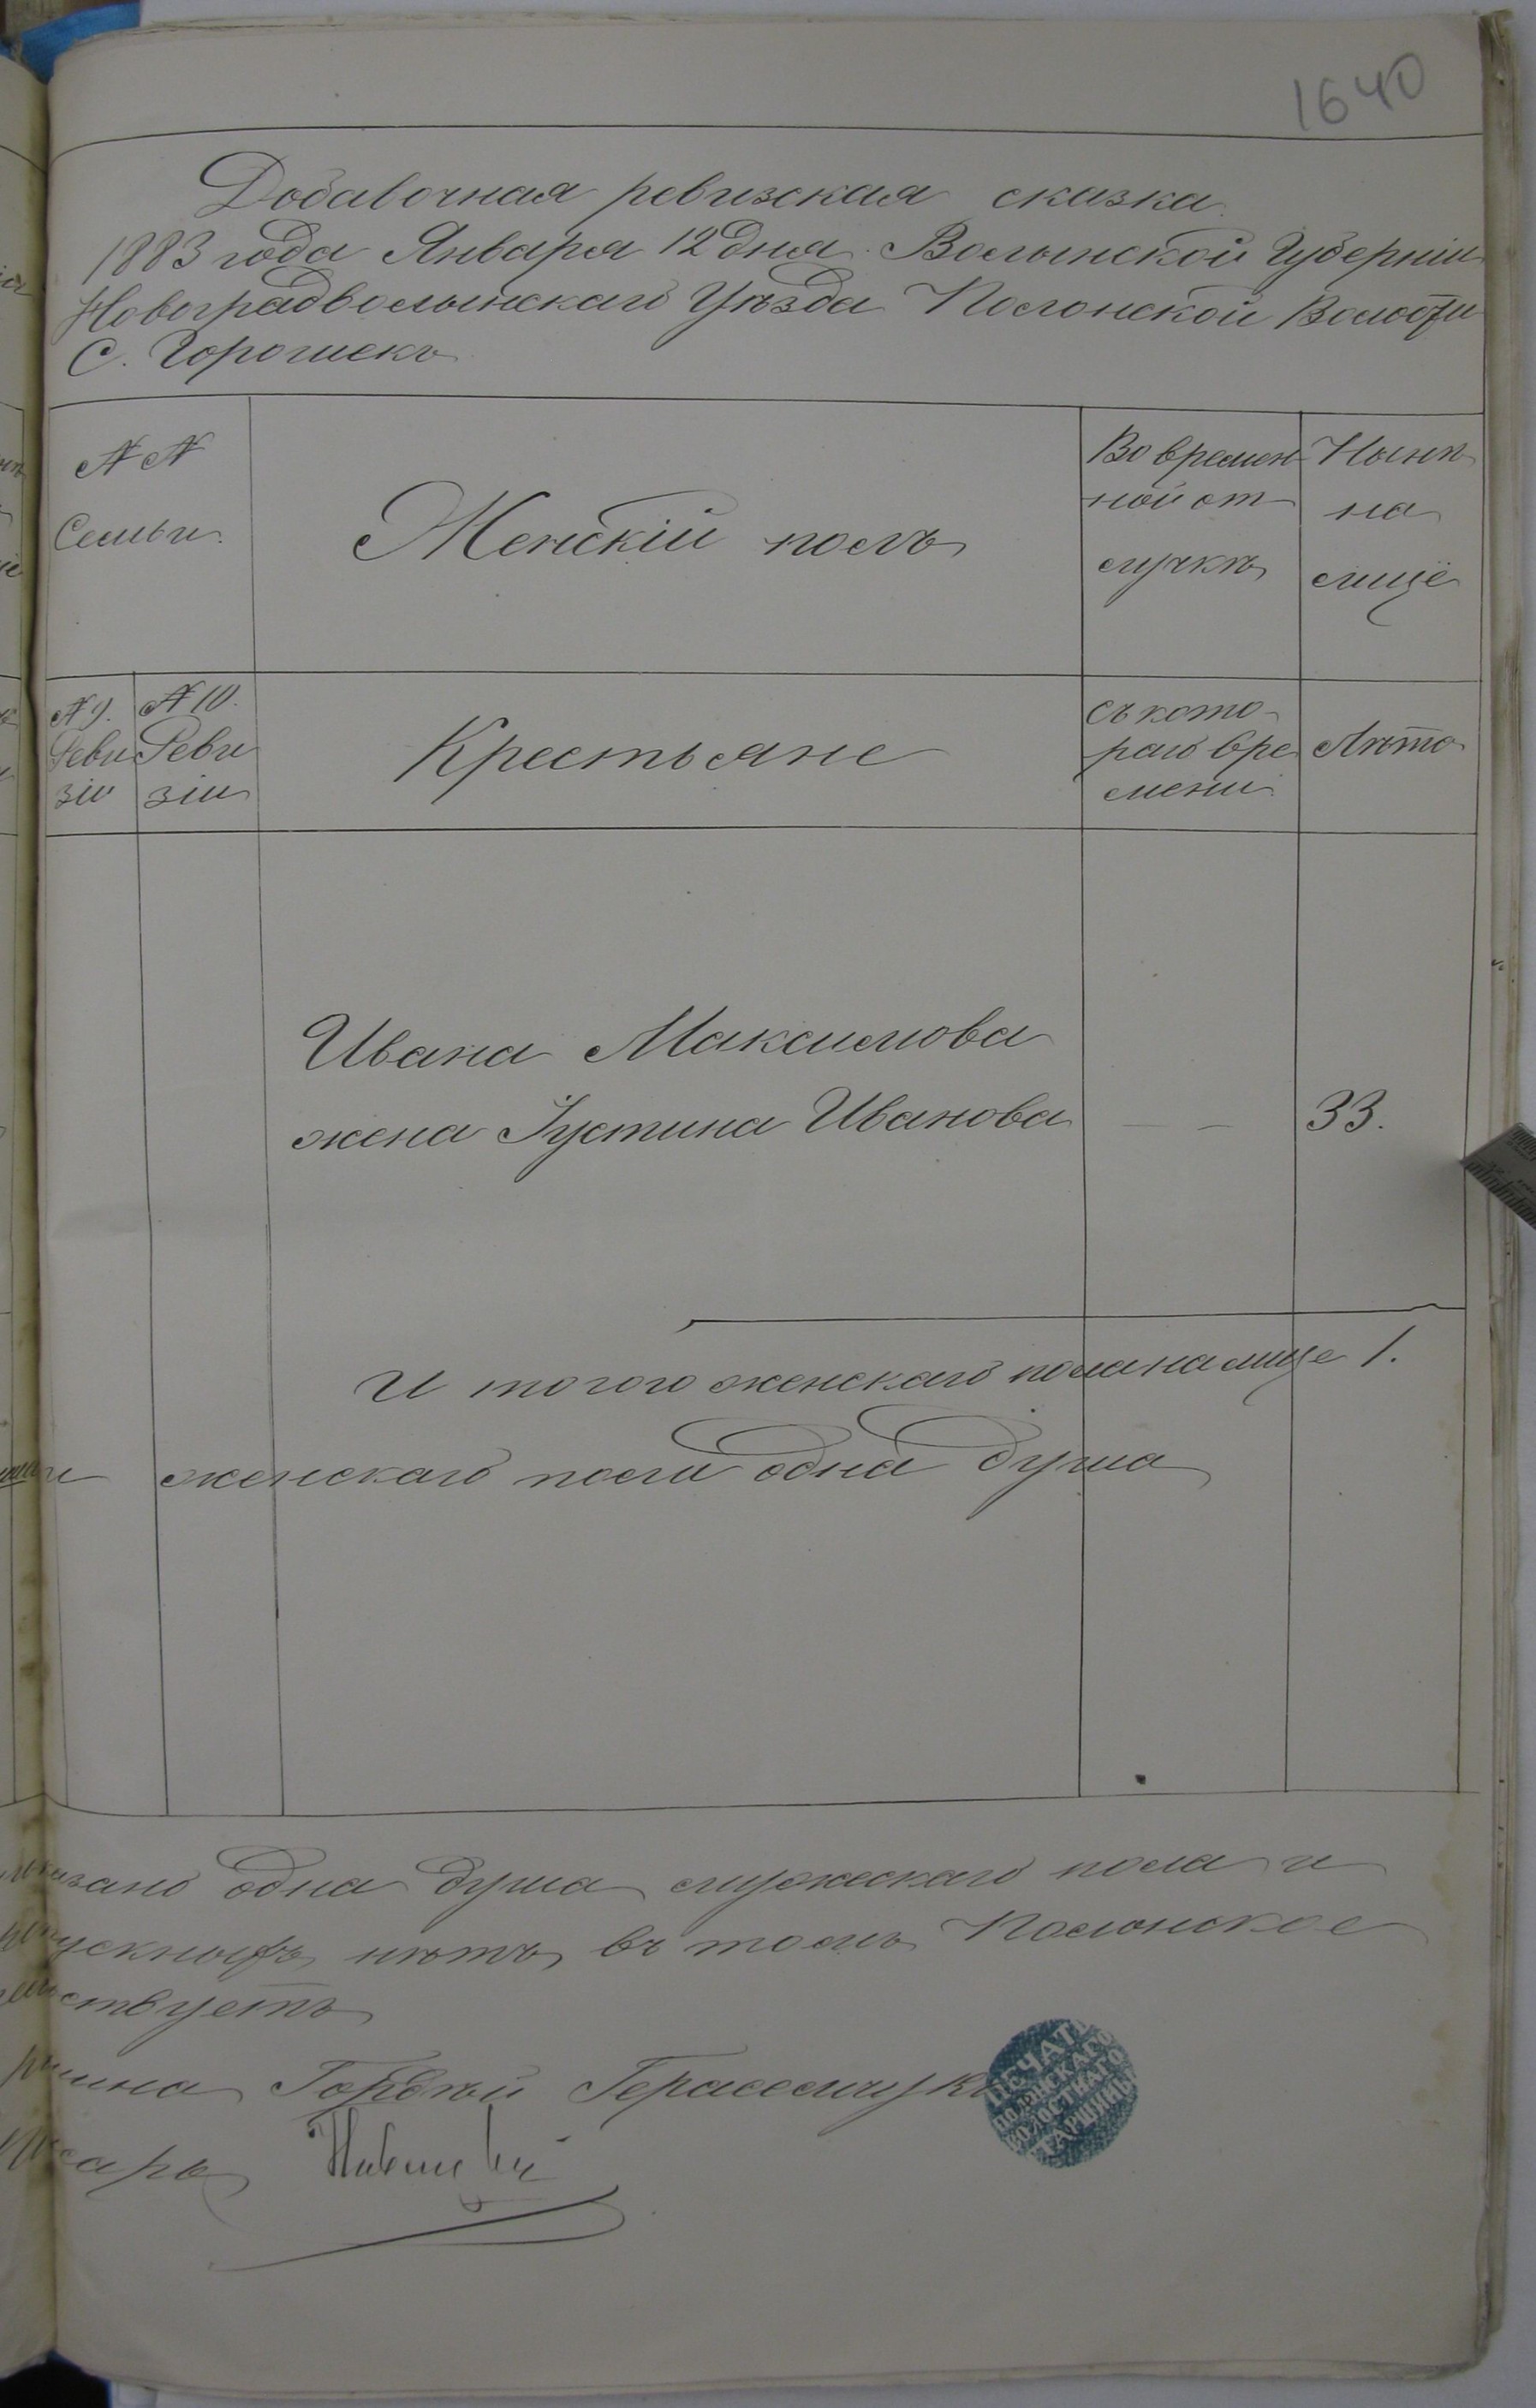 1640
Добавочная ревизская сказка
1883 года Января 12 дня Волынской Губерніи
Новоградволынскаго Уѣзда Полонской Волости
С. Горошекъ
№ №
Семьи.
Женскій полъ
Во времен-
ной от-
лучкѣ
Нынѣ
на
лицё
№ 9.
Реви
зіи
№ 10.
Реви
зіи
Крестьяне
съ кото-
раго вре
мени
Лѣта
Ивана Максимова
жена Іустина Иванова — — 33.
И тогого женскаго пола на лице 1.
и женскаго пола одна душа
одна душа мужескаго пола и
нѣтъ, въ томъ Полонское
Гордѣй Герасемчукъ
ПЕЧАТЬ
ПОЛОНСКАГО
ВОЛОСТНАГО
СТАРШИНЫ